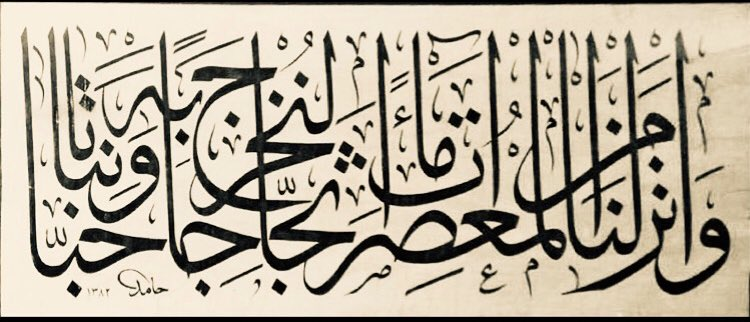 وَأَنزَلْنَا مِنَ الْمُعْصِرَاتِ مَاءً ثَجَّاجًا لِنُخْرِجَ بِهِ حَبًّا وَنَبَاتًا
حامد ١٣٨٢